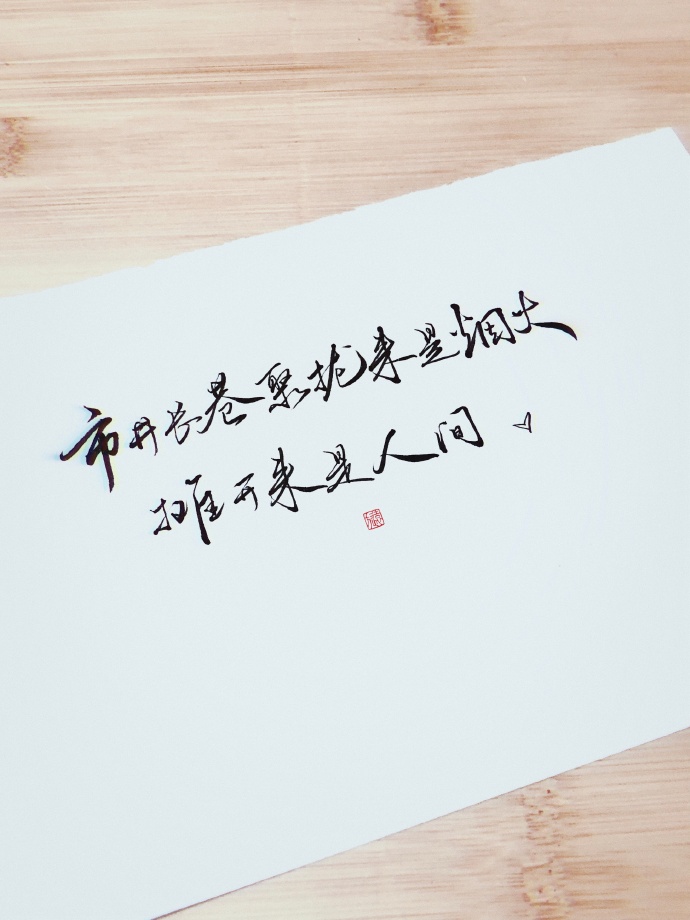 市井长巷聚拢来是烟火
摊开来是人间